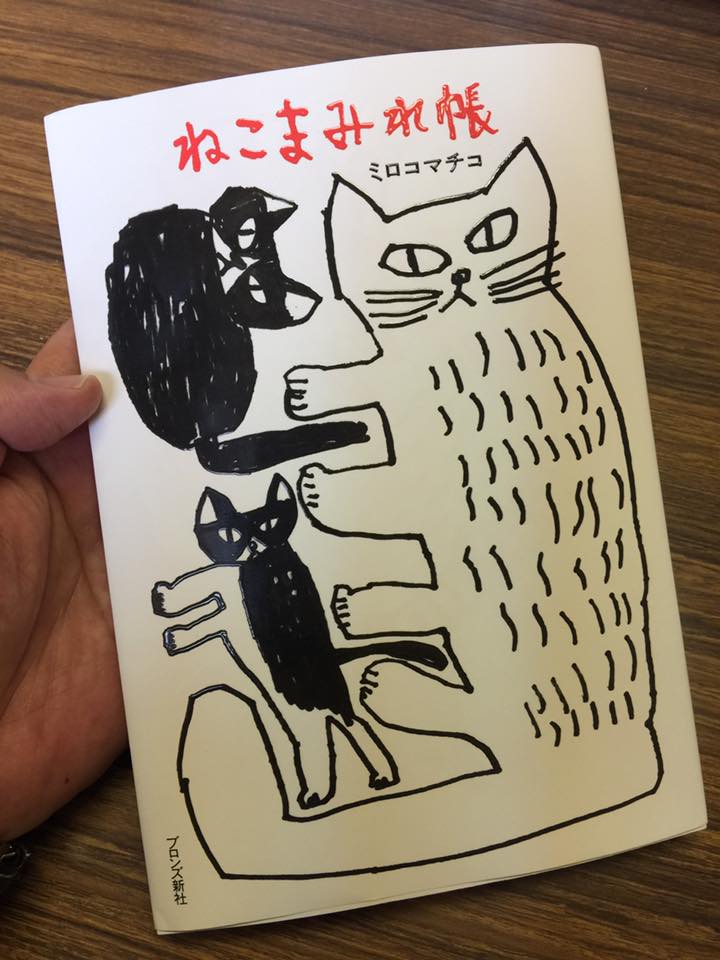 ねこまみれ帳
ミロコマチコ
ブロンズ新社